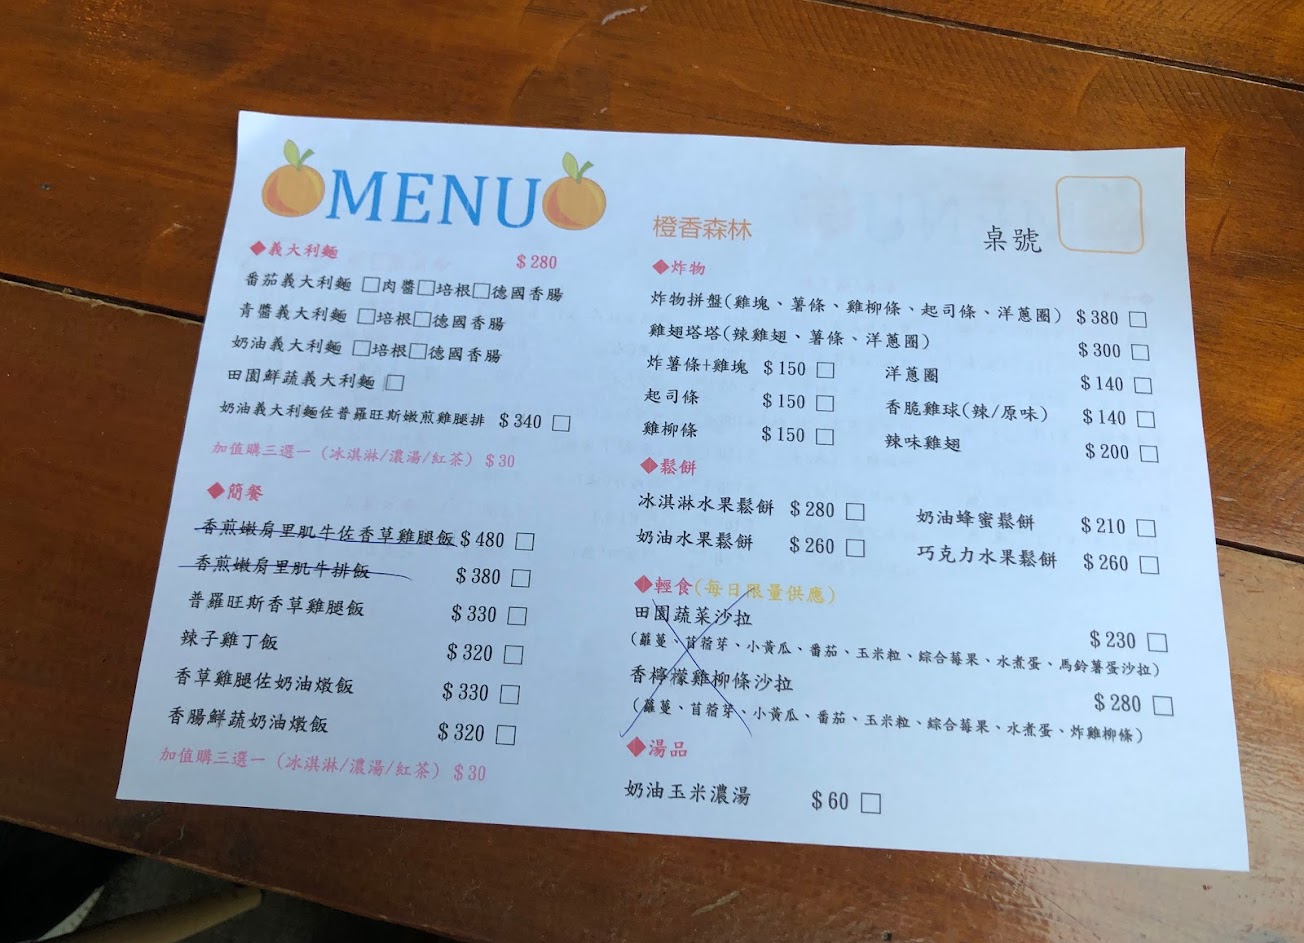 MENU
◆義大利麵 $280
番茄義大利麵 □肉醬□培根□德國香腸
青醬義大利麵 □培根□德國香腸
奶油義大利麵 □培根□德國香腸
田園鮮蔬義大利麵 □
奶油義大利麵佐普羅旺斯嫩煎雞腿排 $340 □
加值購三選一（冰淇淋/濃湯/紅茶）$30
◆簡餐
香煎嫩肩里肌牛佐香草雞腿飯 $480 □
香煎嫩肩里肌牛排飯 $380 □
普羅旺斯香草雞腿飯 $330 □
辣子雞丁飯 $320 □
香草雞腿佐奶油燉飯 $330 □
香腸鮮蔬奶油燉飯 $320 □
加值購三選一（冰淇淋/濃湯/紅茶）$30
橙香森林 桌號
◆炸物
炸物拼盤(雞塊、薯條、雞柳條、起司條、洋蔥圈) $380 □
雞翅塔塔(辣雞翅、薯條、洋蔥圈) $300 □
炸薯條+雞塊 $150 □ 洋蔥圈 $140 □
起司條 $150 □ 香脆雞球(辣/原味) $140 □
雞柳條 $150 □ 辣味雞翅 $200 □
◆鬆餅
冰淇淋水果鬆餅 $280 □ 奶油蜂蜜鬆餅 $210 □
奶油水果鬆餅 $260 □ 巧克力水果鬆餅 $260 □
◆輕食(每日限量供應)
田園蔬菜沙拉 $230 □
(蘿蔓、苜蓿芽、小黃瓜、番茄、玉米粒、綜合莓果、水煮蛋、馬鈴薯蛋沙拉)
香檸檬雞柳條沙拉 $280 □
(蘿蔓、苜蓿芽、小黃瓜、番茄、玉米粒、綜合莓果、水煮蛋、炸雞柳條)
◆湯品
奶油玉米濃湯 $60 □